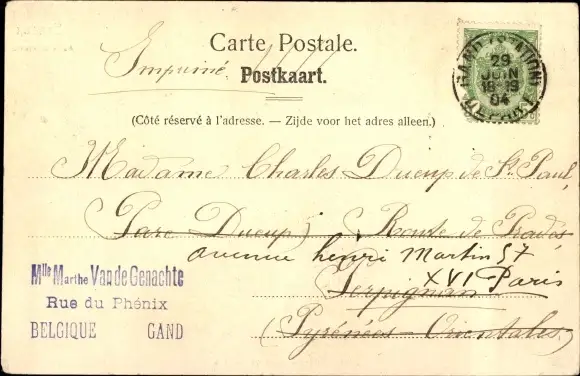 Carte Postale.
Imprimé
Postkaart.
GAND (STATION)
29
JUIN
18-19
04
DEPART
(Côté réservé à l'adresse. — Zijde voor het adres alleen.)
Madame Charles Ducup de St. Paul,
(Parc Ducup) (Route de Prades
avenue henri Martin 57
XVI Paris
Perpignan
(Pyrénées-Orientales)
Mlle Marthe Van de Genachte
Rue du Phénix
BELGIQUE GAND